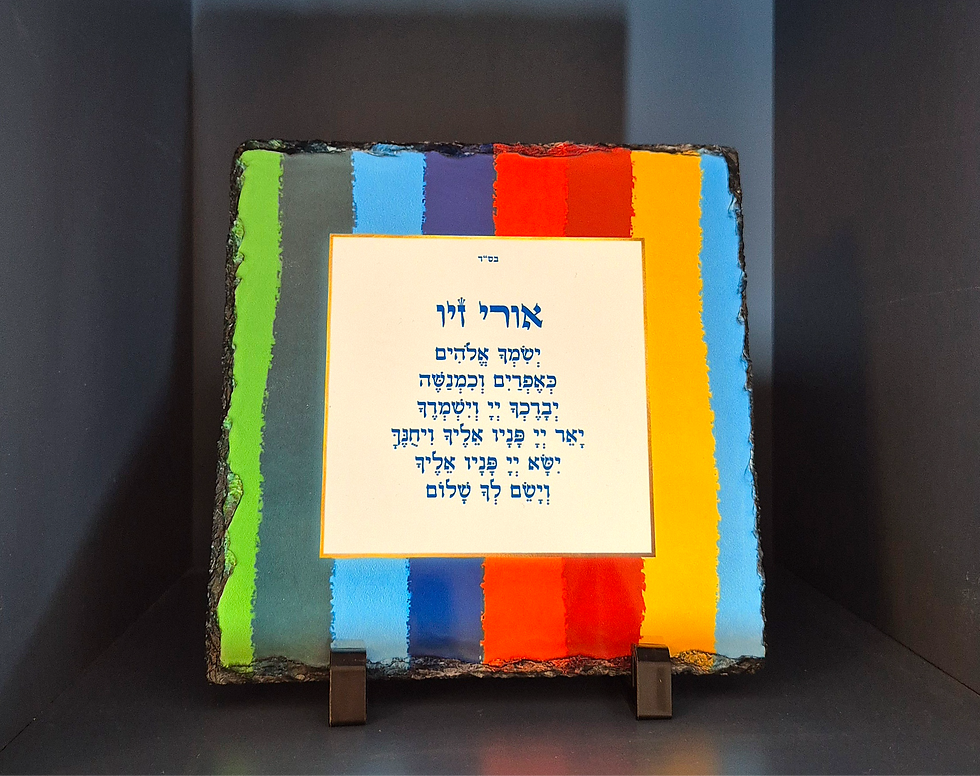 בס״ד
אורי זיו
יְשִׂמְךָ אֱלֹהִים
כְּאֶפְרַיִם וְכִמְנַשֶּׁה
יְבָרֶכְךָ יְיָ וְיִשְׁמְרֶךָ
יָאֵר יְיָ פָּנָיו אֵלֶיךָ וִיחֻנֶּךָּ
יִשָּׂא יְיָ פָּנָיו אֵלֶיךָ
וְיָשֵׂם לְךָ שָׁלוֹם